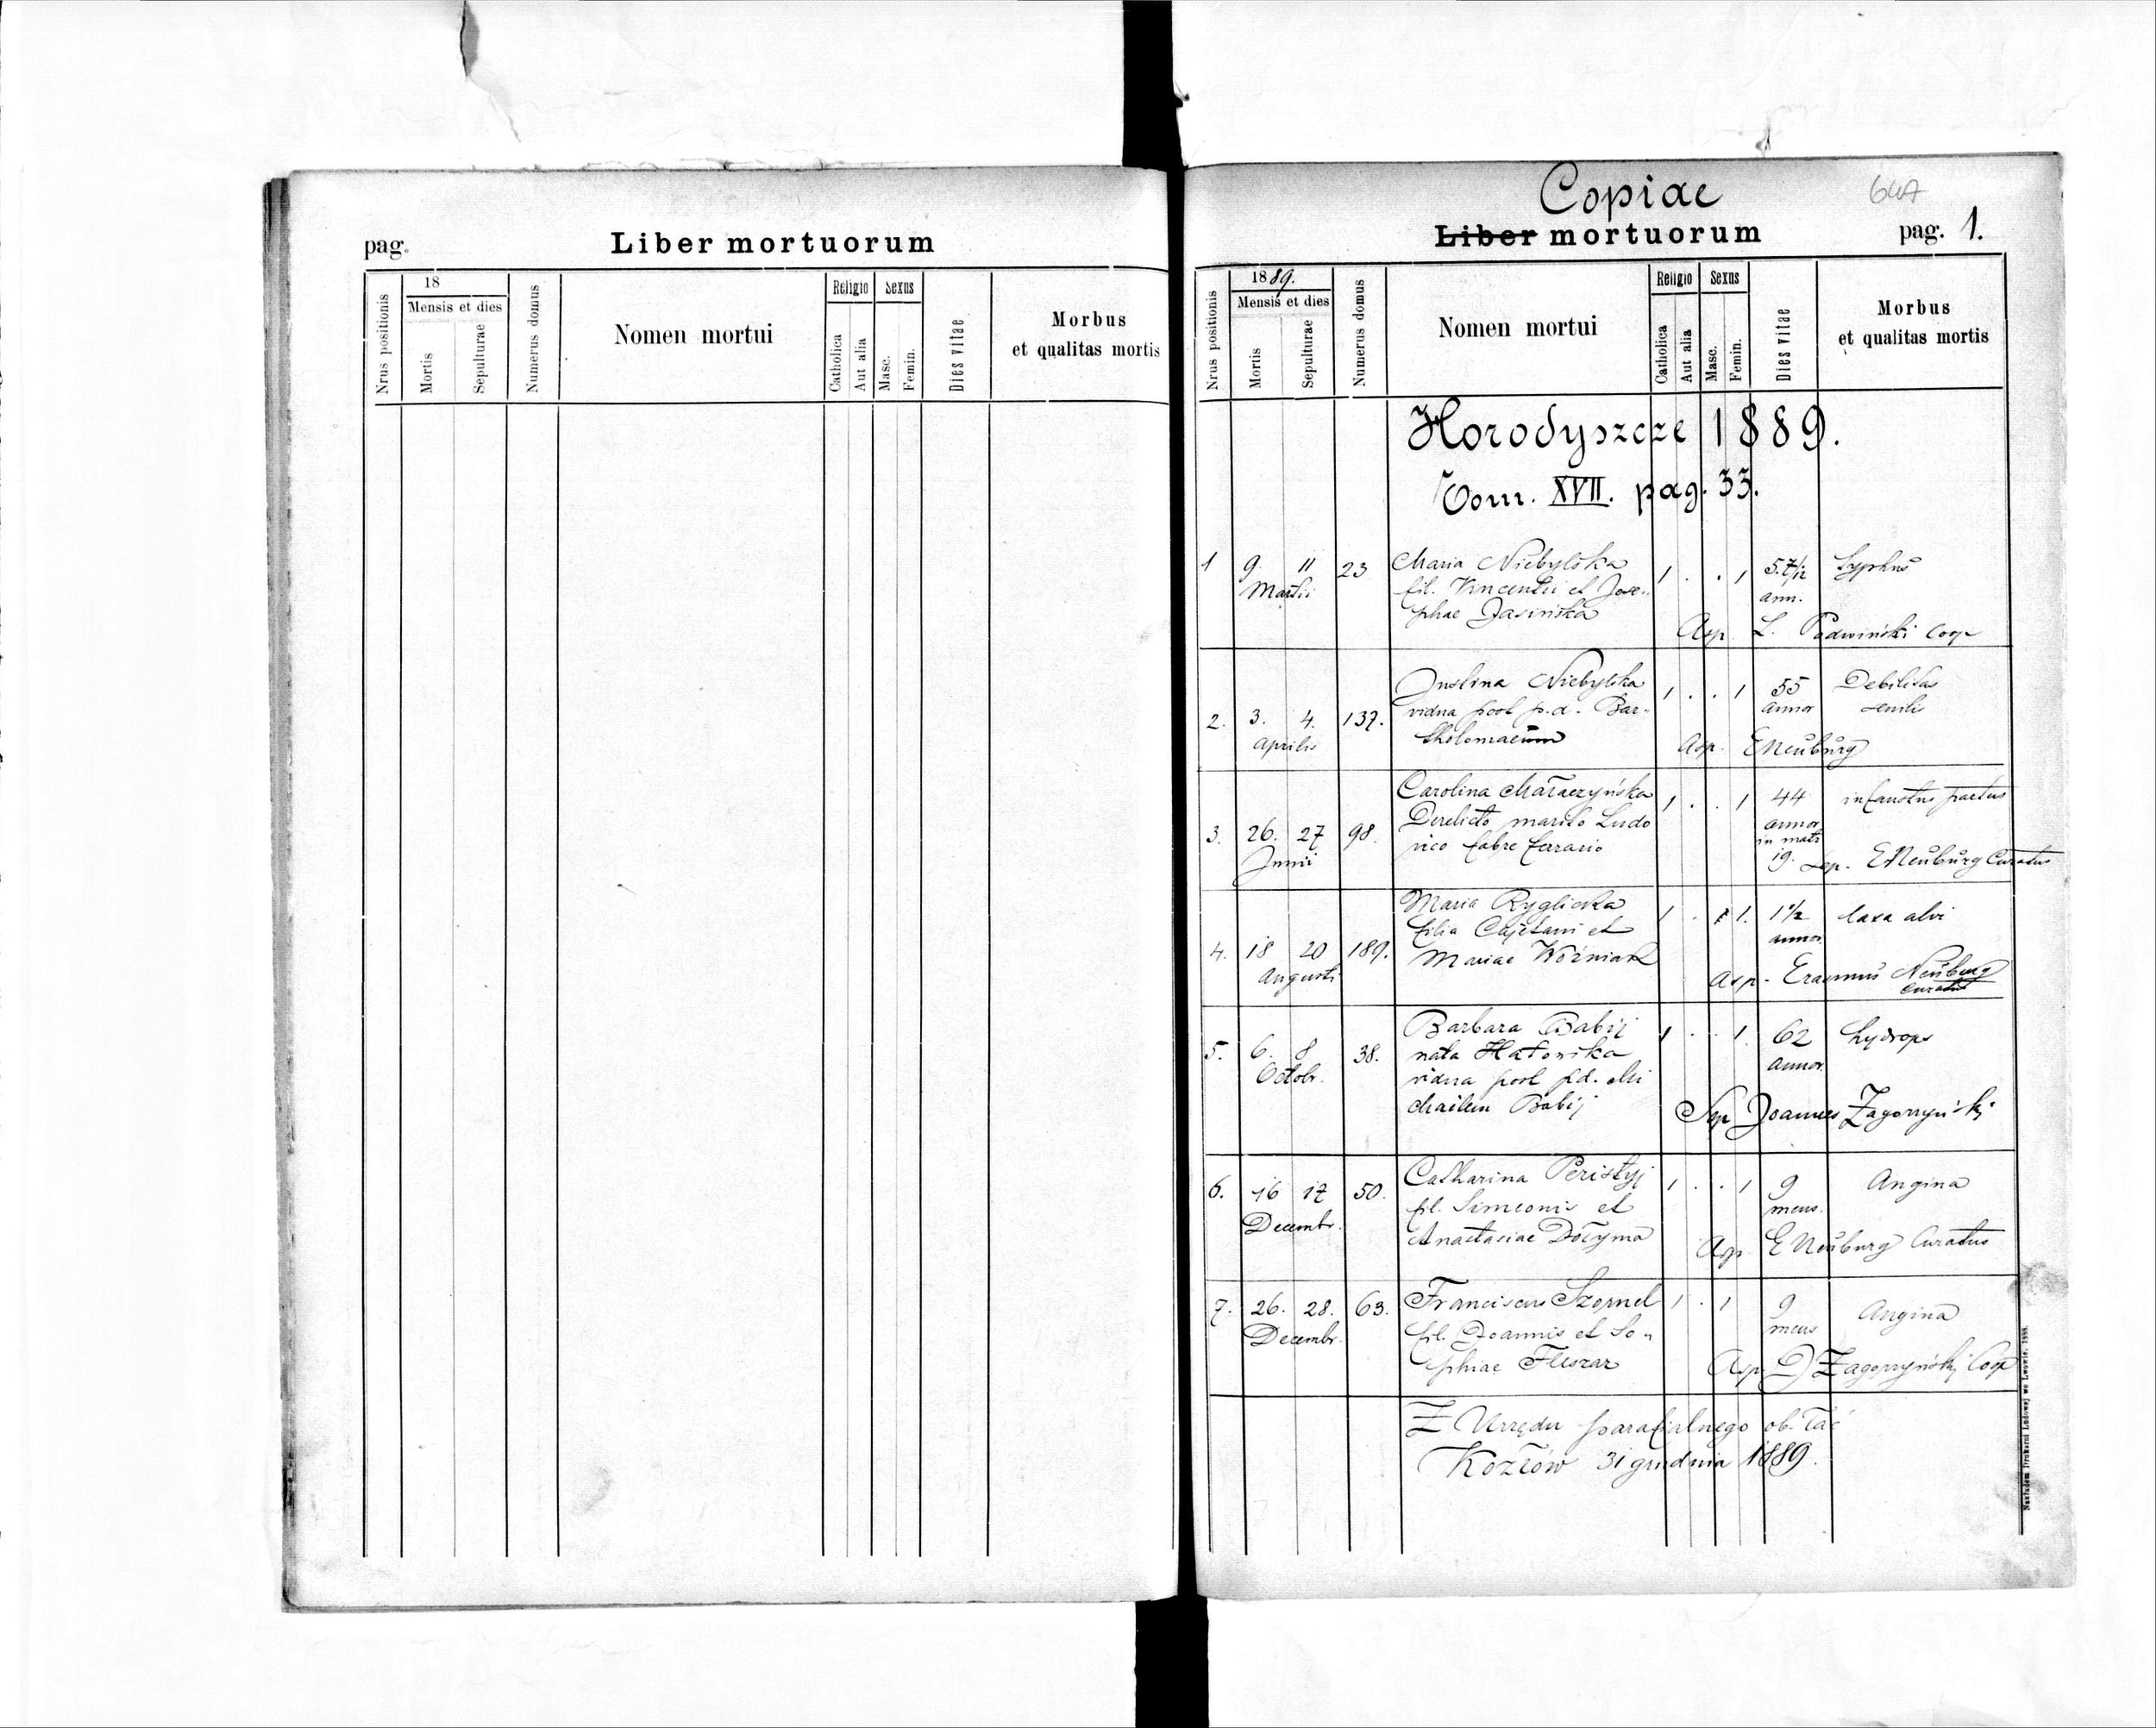 pag.
Liber mortuorum
Nrus positionis
18
Mensis et dies
Mortis
Sepulturae
Numerus domus
Nomen mortui
Religio
Catholica
Aut alia
Sexus
Masc.
Femin.
Dies vitae
Morbus
et qualitas mortis
Copiae
647
Liber mortuorum
pag. 1.
Nrus positionis
1889.
Mensis et dies
Mortis
Sepulturae
Numerus domus
Nomen mortui
Religio
Catholica
Aut alia
Sexus
Masc.
Femin.
Dies vitae
Morbus
et qualitas mortis
Horodyszcze 1889.
Tom. XVII. pag. 33.
1 9. 11 23 Maria Niebylska 1 . . 1 5.7/12 Typhus
Martii fil. Vincentii et Jose- ann.
phae Jasińska
Asp. L. Podwiński Coop
Justina Niebylska 1 . . 1 55 Debilitas
vidua post p.d. Bar- annor senilis
2. 3. 4. 137. tholomaeum
Aprilis Asp. E Neuburg
Carolina Maraczyńska 1 . . 1 44 infaustus partus
Derelicto marito Ludo annor
3. 26. 27 98. vico fabro ferrario in matr
Junii 19. Sep. E Neuburg Curatus
Maria Ryglicka 1 . 1. 1 1/2 laxa alvi
filia Cajetani et annor.
4. 18 20 189. Mariae Woźniak
Augusti Asp. Erasmus Neuburg
Curatus
Barbara Babij 1 . . 1. 62 hydrops
5. 6. 8 38. nata Hatońska annor.
Octobr. vidua post pd. Mi
chaelem Babij Sep Joannes Zagorzyński
6. 16 17 50. Catharina Peristyj 1 . . 1 9 Angina
Decembr. fil. Simeonis et mens.
Anastasiae Dołyma Asp E Neuburg Curatus
7. 26. 28. 63. Franciscus Szornel 1 . 1 9 Angina
Decembr. fil. Joannis et So- mens
phiae Fluszar Asp J Zagorzyński Coop
Z Urzędu parafialnego ob. łać
Kozłów 31 grudnia 1889.
Nakładem Drukarni Ludowej we Lwowie. 1888.